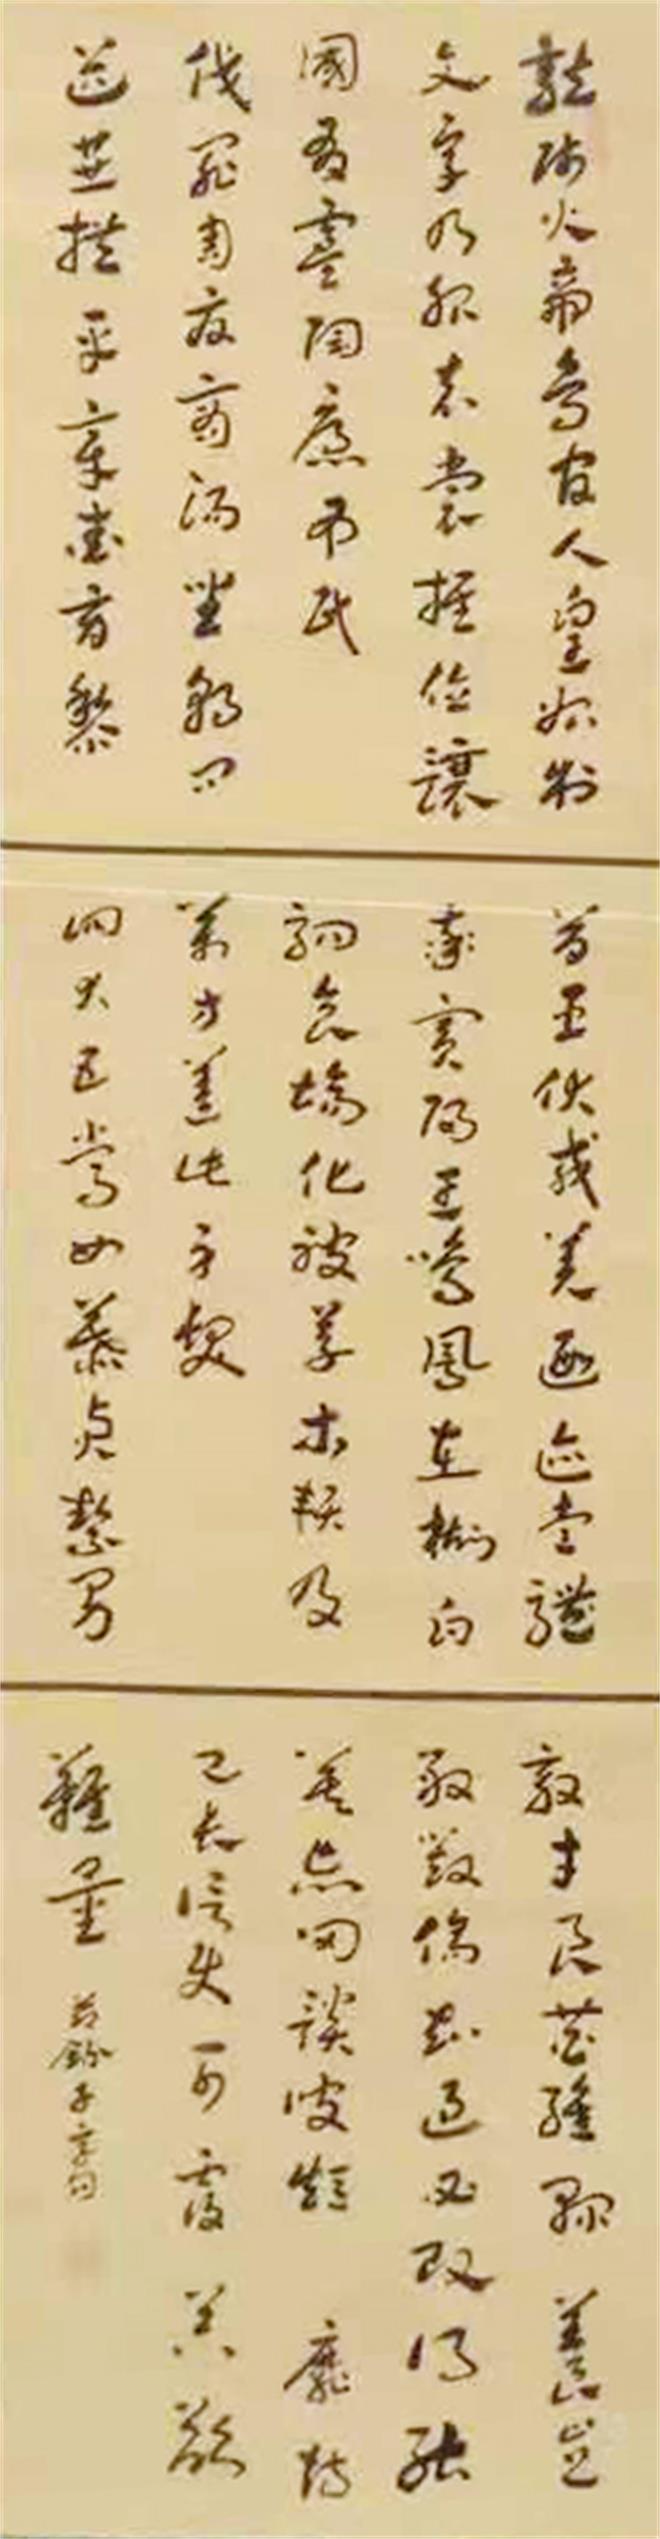 龍師火帝鳥官人皇始制
文字乃服衣裳推位讓
國有虞陶唐弔民
伐罪周發商湯坐朝問
道垂拱平章愛育黎
首臣伏戎羌遐邇壹體
率賓歸王鳴鳳在樹白
駒食場化被草木賴及
萬方蓋此身髮
四大五常女慕貞絜男
效才良恭惟鞠養豈
敢毀傷知過必改得能
莫忘罔談彼短靡恃
己長信使可覆器欲
難量
節錄千字句